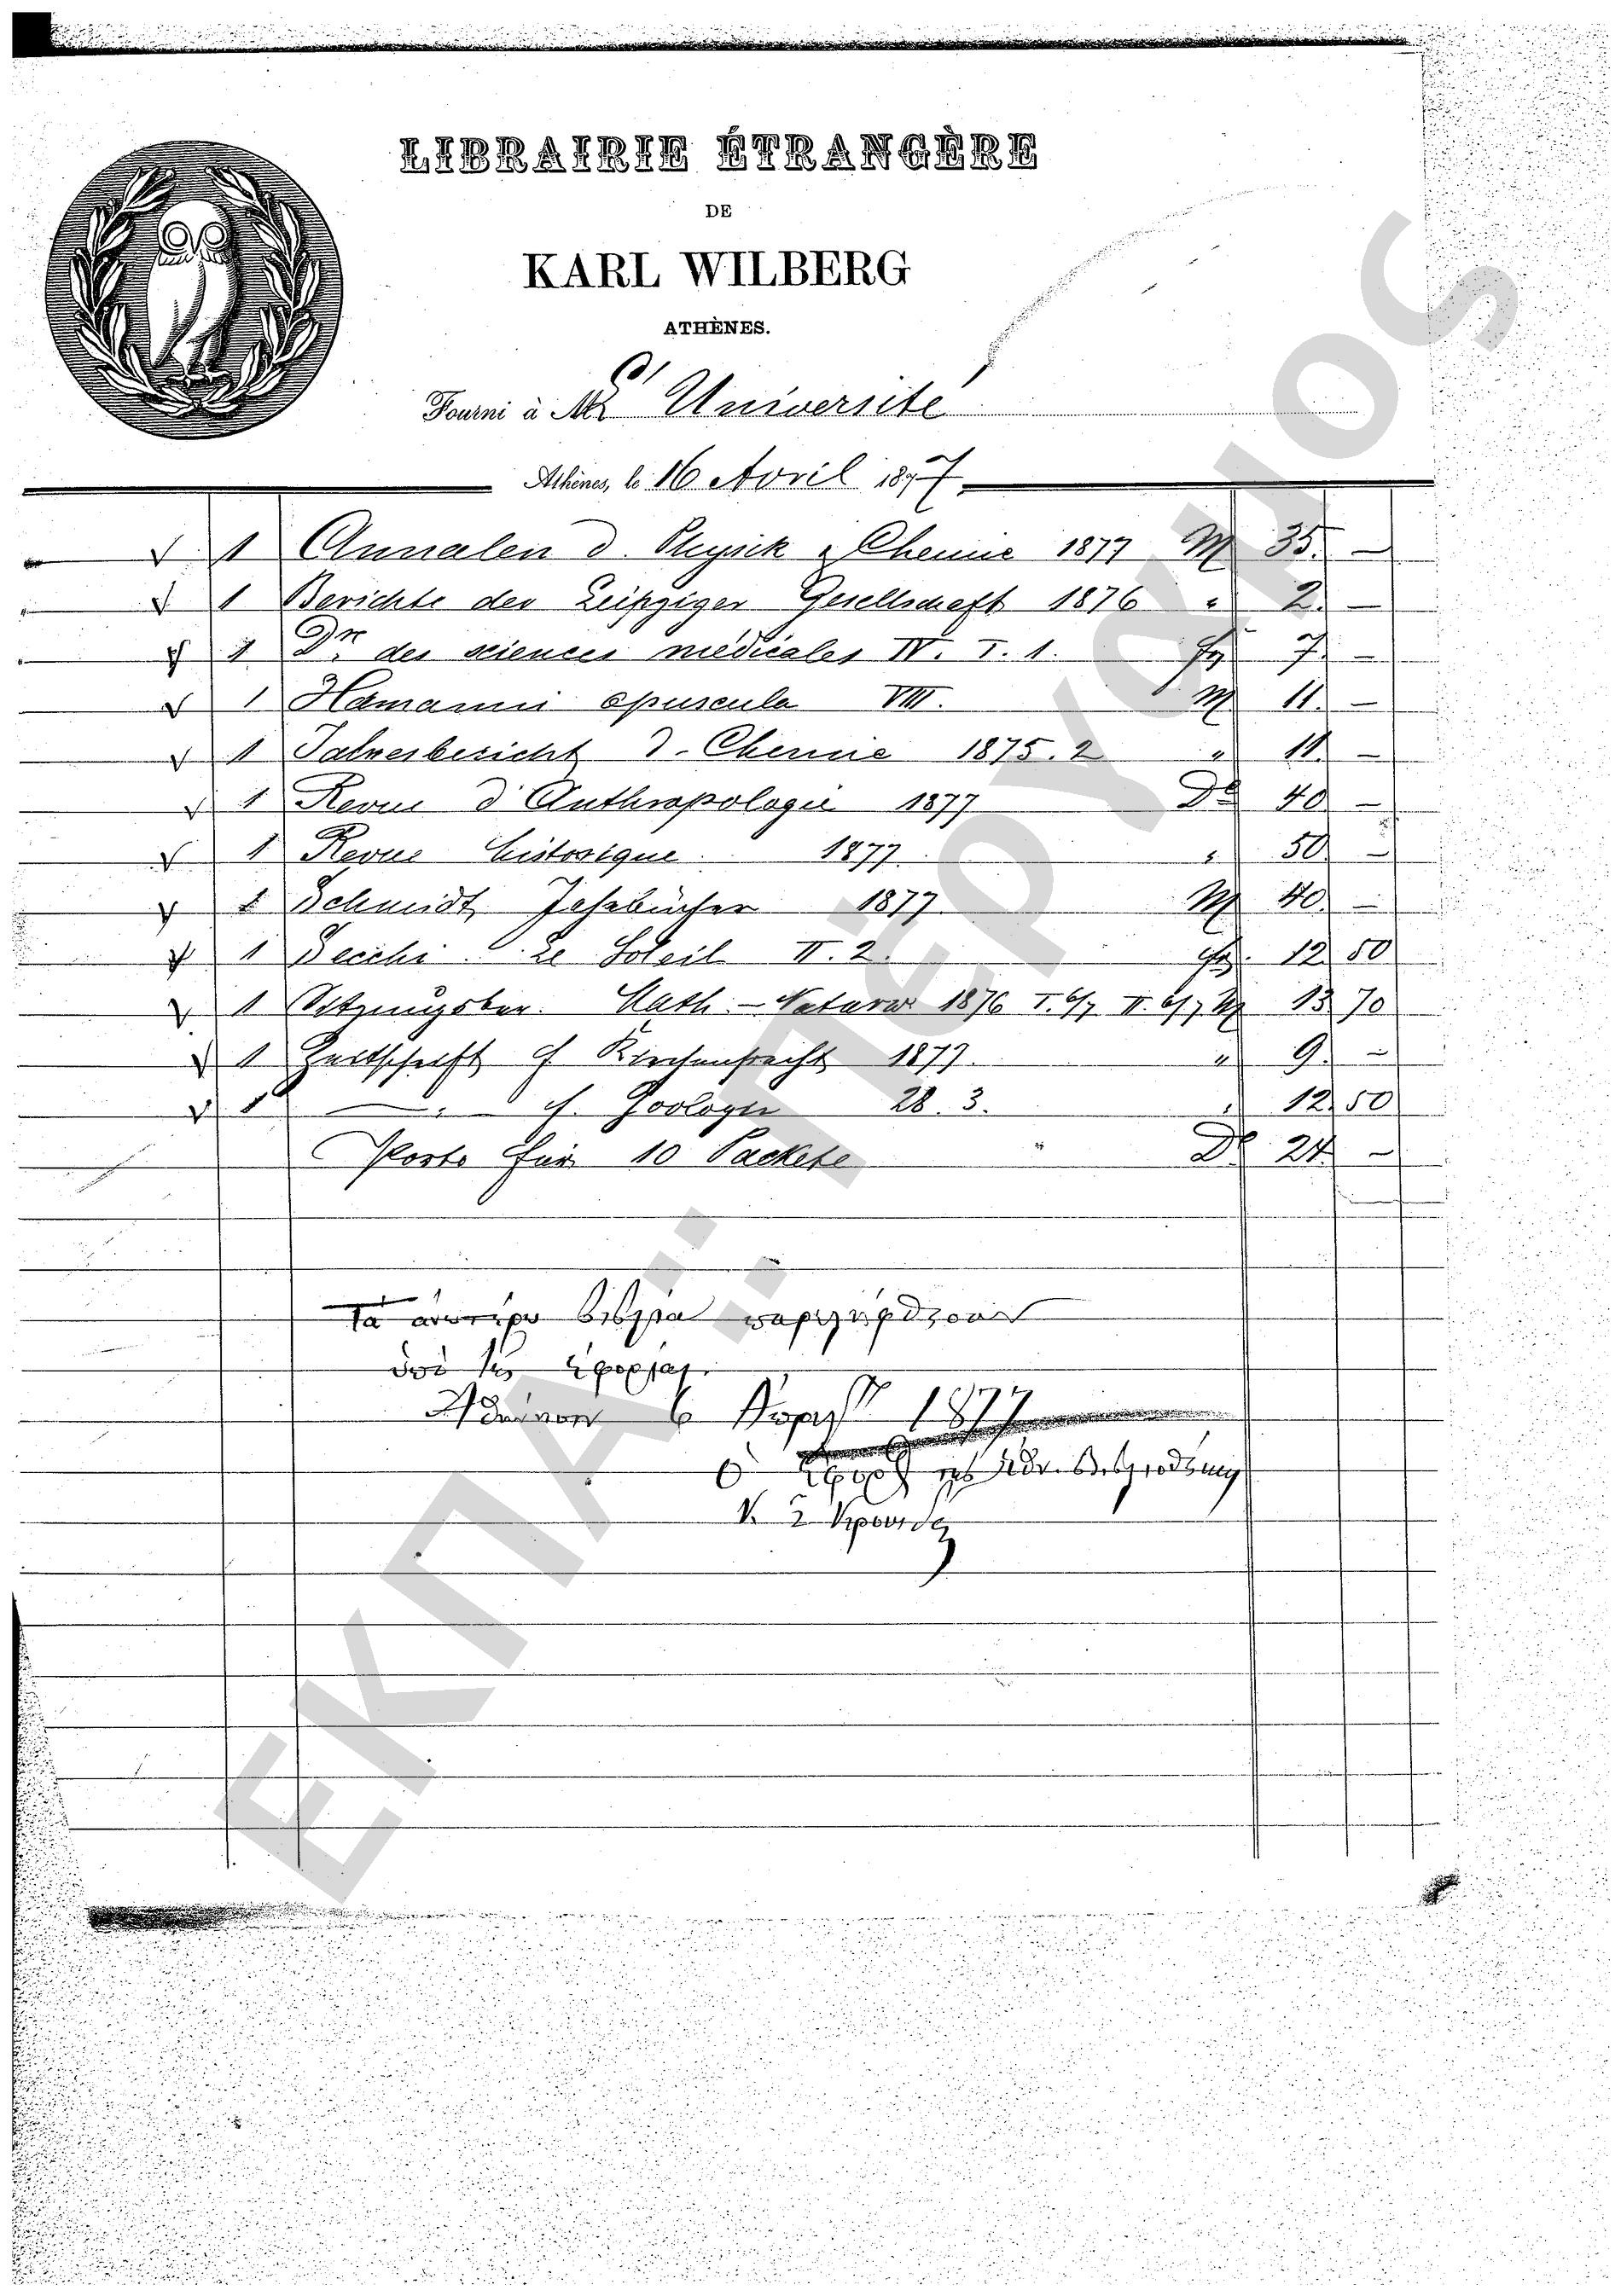 LIBRAIRIE ÉTRANGÈRE
DE
KARL WILBERG
ATHÈNES.
Fourni à Mr l'Université
Athènes, le 16 Avril 1877
1 Annalen d. Physik u Chemie 1877 M 35. —
1 Berichte der Leipziger Gesellschaft 1876 " 2. —
1 Dre des sciences médicales IV. T. 1. fr 7. —
1 Hamanni opuscula VIII. M 11. —
1 Jahresbericht d. Chemie 1875. 2 " 11. —
1 Revue d'Anthropologie 1877 Dr 40 —
1 Revue historique 1877 " 50 —
1 Schmidt Jahrbücher 1877 M 40. —
1 Secchi Le Soleil II. 2. fr. 12 50
1 Sitzungsber. Math. - Naturw 1876 I. 6/7 II. 6/7 M 13 70
1 Zeitschrift f Kirchenrecht 1877. " 9. —
1 — " — f. Zoologie 28. 3. " 12 50
Porto für 10 Packete Dr 24. —
Τὰ ἀνωτέρω βιβλία παρελήφθησαν
ὑπὸ τῆς ἐφορείας.
1877
Ὁ Ἔφορος τῆς
ΕΚΠΑ: Πέργαμος